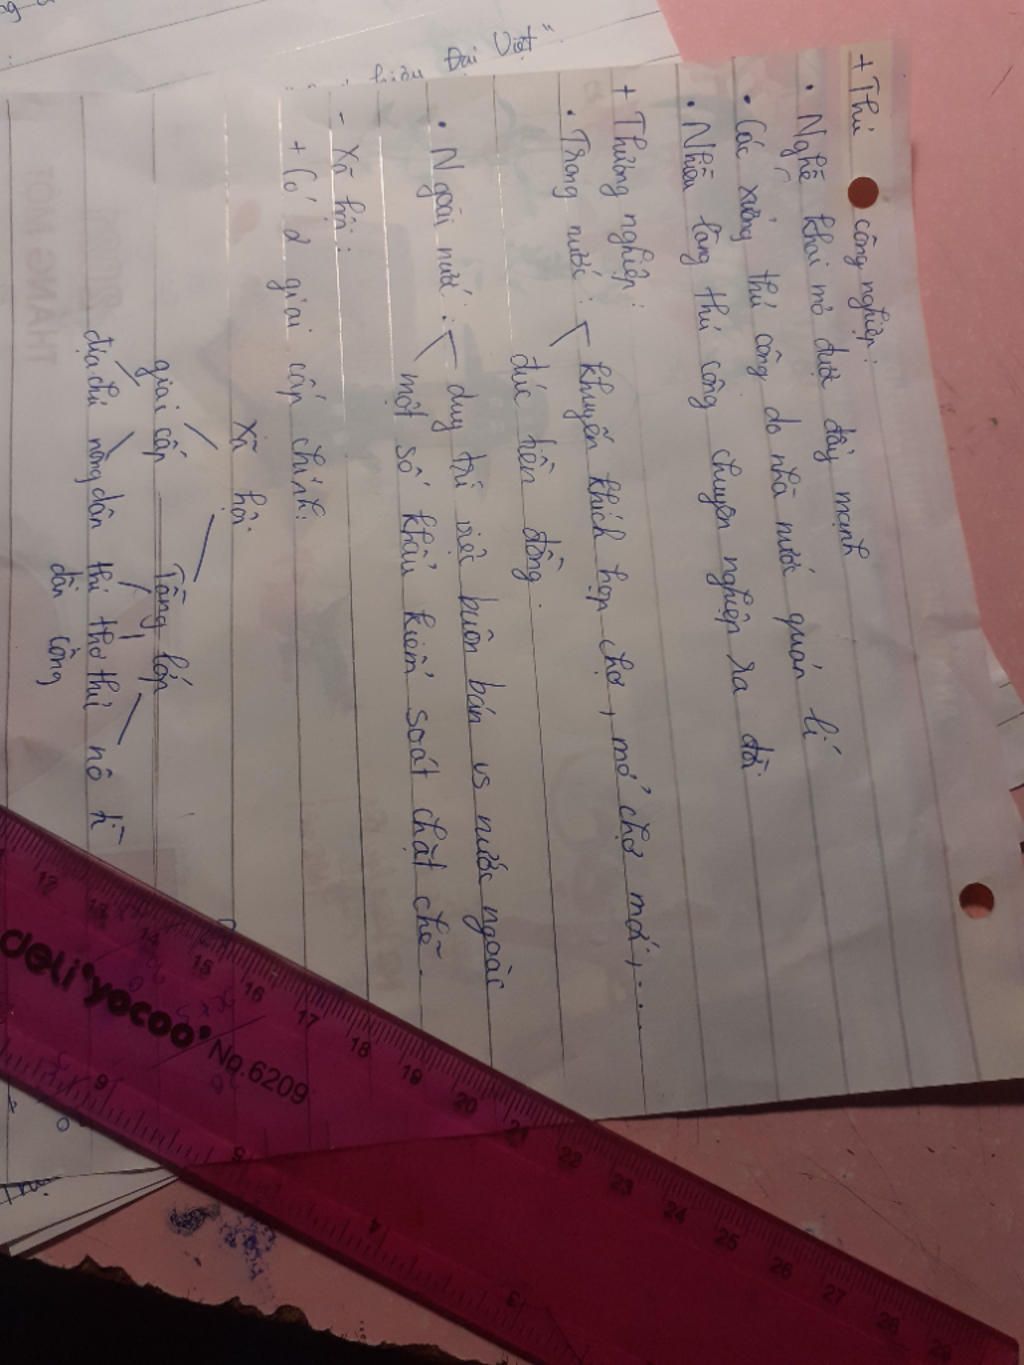 Đại Việt"
+ Thủ công nghiệp:
• Nghề khai mỏ được đẩy mạnh
• Các xưởng thủ công do nhà nước quản lí
• Nhiều làng thủ công chuyên nghiệp ra đời
+ Thương nghiệp:
• Trong nước: khuyến khích họp chợ, mở chợ mới, ...
đúc tiền đồng.
• Ngoài nước: duy trì việc buôn bán vs nước ngoài
một số khẩu kiểm soát chặt chẽ.
- Xã hội:
+ Có 2 giai cấp chính:
xã hội
giai cấp Tầng lớp
địa chủ nông dân thị thợ thủ nô tì
dân công
12 13 14 15 16 17 18 19 20 21 22 23 24 25 26 27 28 29
deli yocoo No.6209
6 5 4 3